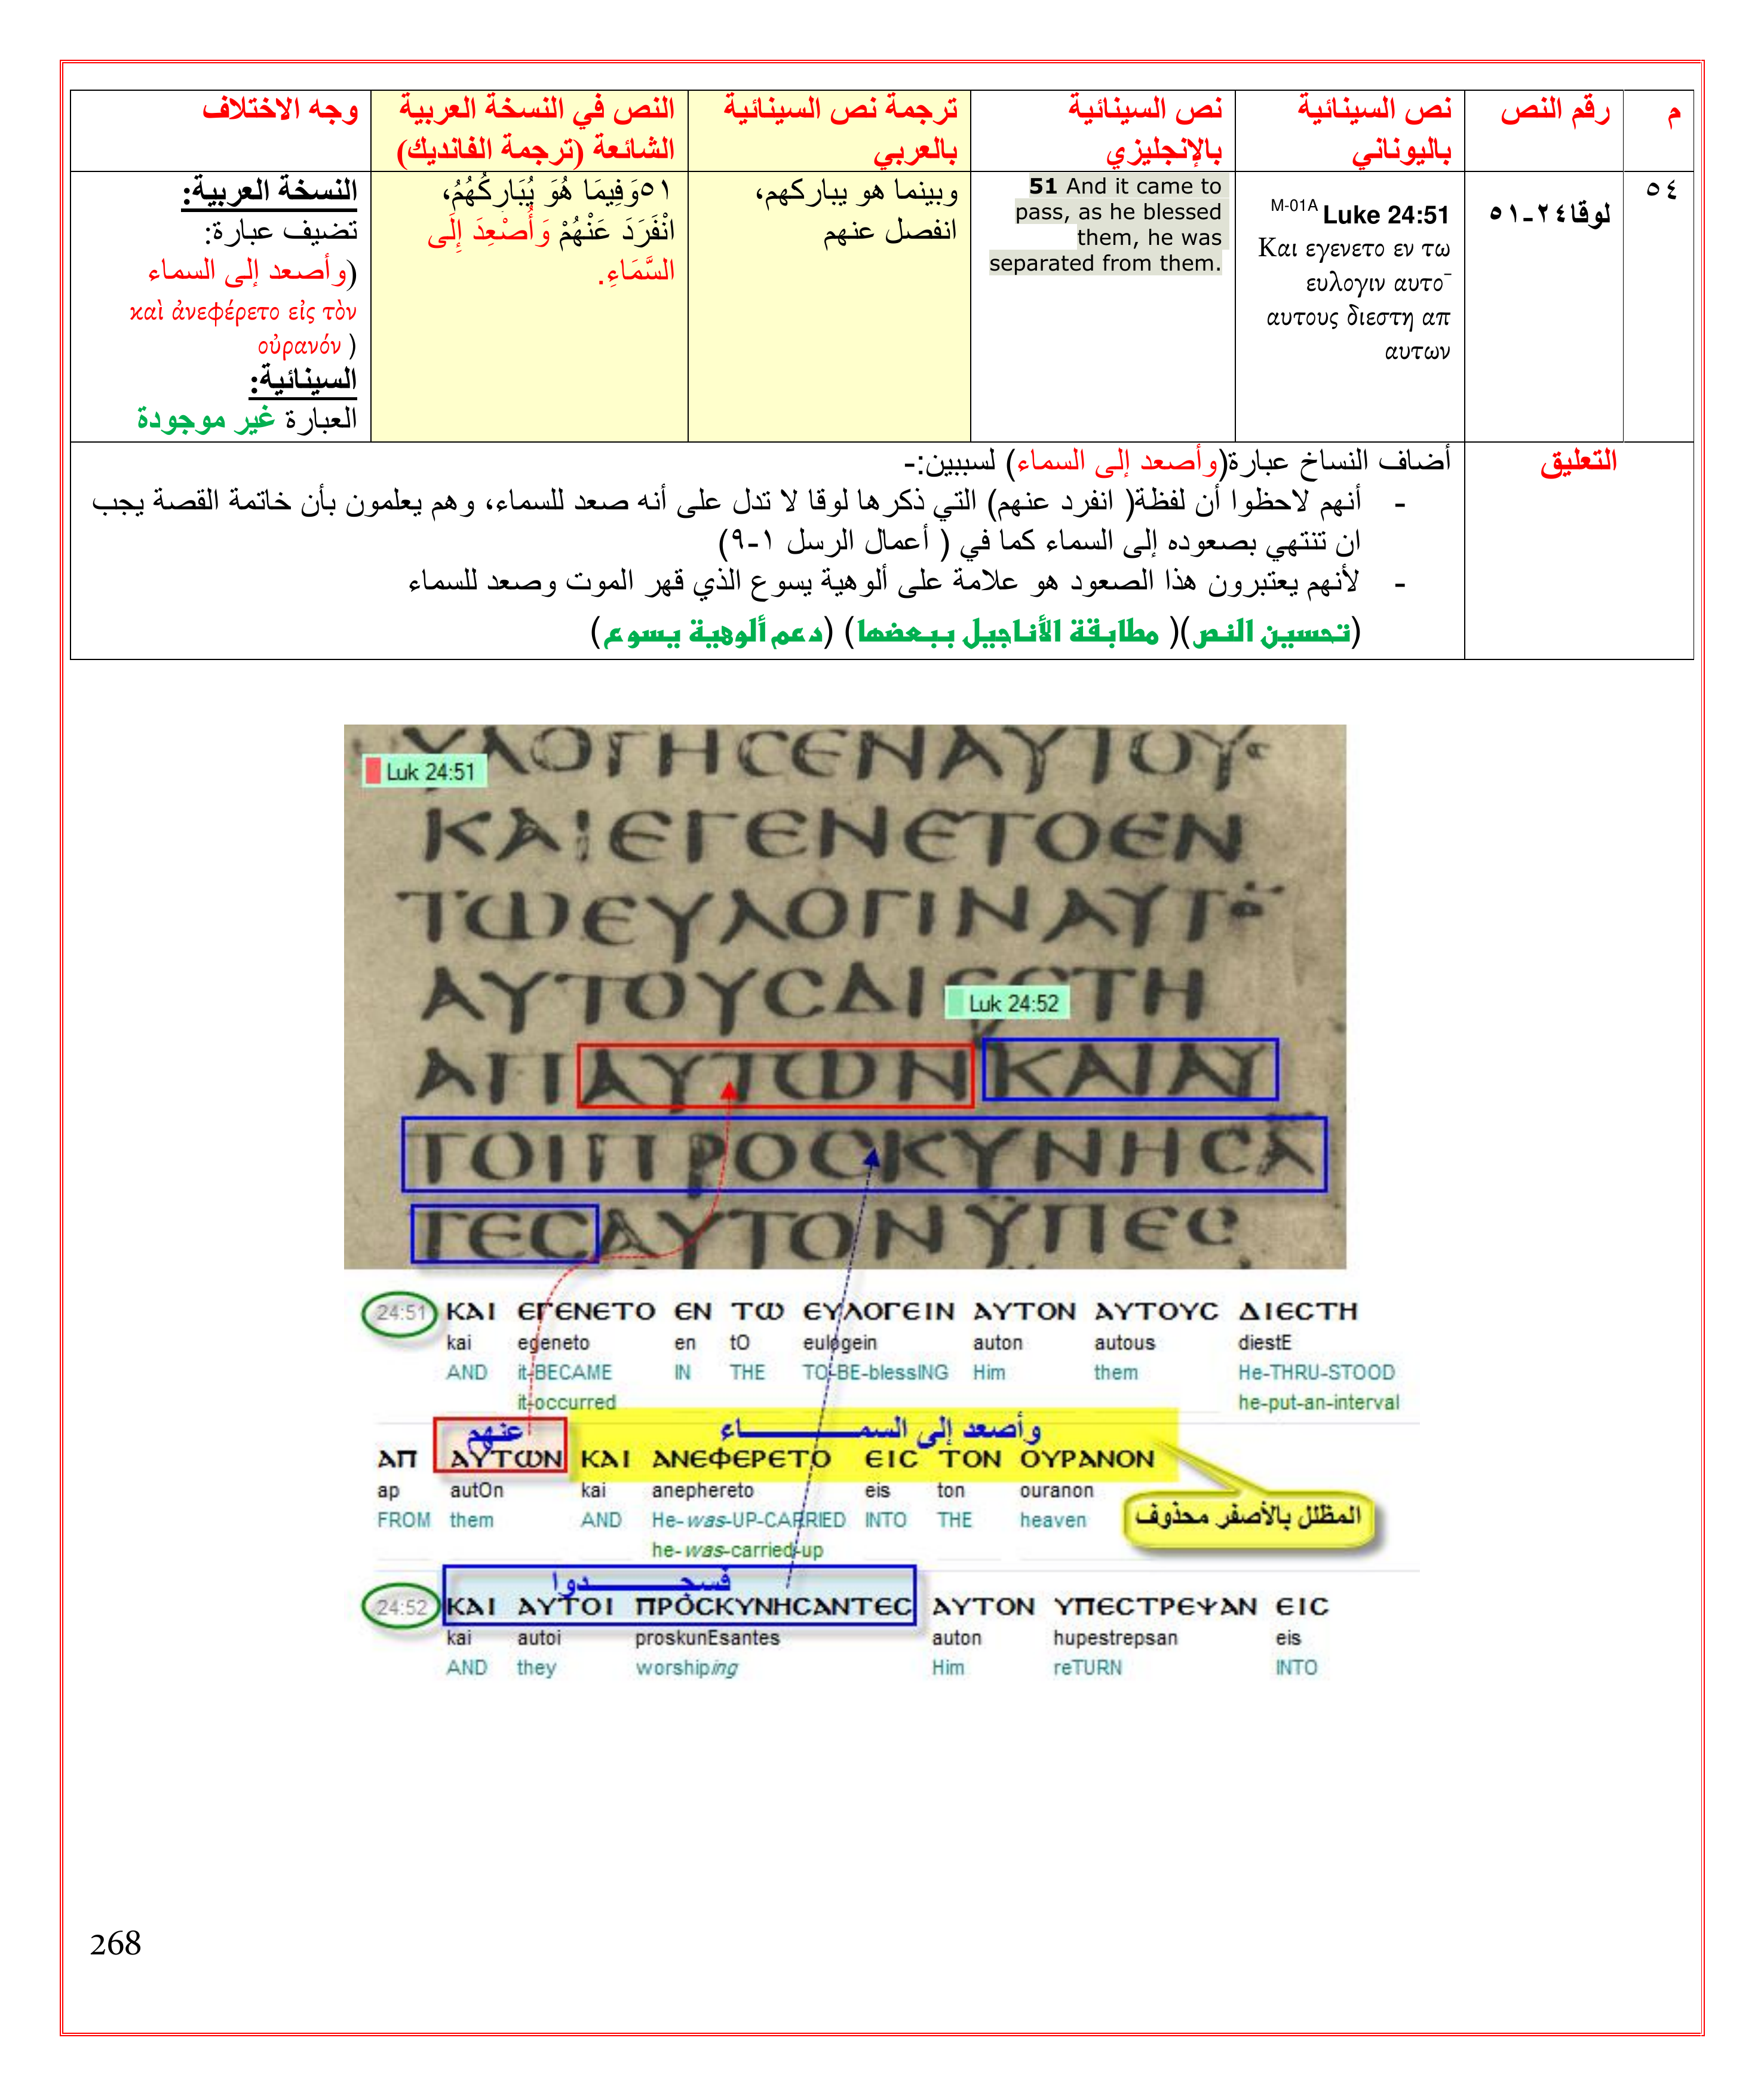 م
رقم النص
نص السينائية
باليوناني
نص السينائية
بالإنجليزي
ترجمة نص السينائية
بالعربي
النص في النسخة العربية
الشائعة (ترجمة الفانديك)
وجه الاختلاف
٥٤
لوقا٢٤-٥١
M-01A Luke 24:51
Και εγενετο εν τω
ευλογιν αυτο¯
αυτους διεστη απ
αυτων
51 And it came to
pass, as he blessed
them, he was
separated from them.
وبينما هو يباركهم،
انفصل عنهم
٥١وَفِيمَا هُوَ يُبَارِكُهُمُ،
انْفَرَدَ عَنْهُمْ وَأُصْعِدَ إِلَى
السَّمَاءِ.
النسخة العربية:
تضيف عبارة:
(وأصعد إلى السماء
καὶ ἀνεφέρετο εἰς τὸν
οὐρανόν )
السينائية:
العبارة غير موجودة
التعليق
أضاف النساخ عبارة(وأصعد إلى السماء) لسببين:-
- أنهم لاحظوا أن لفظة( انفرد عنهم) التي ذكرها لوقا لا تدل على أنه صعد للسماء، وهم يعلمون بأن خاتمة القصة يجب
ان تنتهي بصعوده إلى السماء كما في ( أعمال الرسل ١-٩)
- لأنهم يعتبرون هذا الصعود هو علامة على ألوهية يسوع الذي قهر الموت وصعد للسماء
(تحسين النص)( مطابقة الأناجيل ببعضها) (دعم ألوهية يسوع)
Luk 24:51
ΥΛΟΓΗCΕΝΑΥΤΟΥC
ΚΑΙΕΓΕΝΕΤΟΕΝ
ΤΩΕΥΛΟΓΙΝΑΥΤΟ
ΑΥΤΟΥCΔΙΕCΤΗ
Luk 24:52
ΑΠΑΥΤΩΝΚΑΙΑΥ
ΤΟΙΠΡΟCΚΥΝΗCΑ
ΤΕCΑΥΤΟΝΫΠΕC
24:51 ΚΑΙ ΕΓΕΝΕΤΟ ΕΝ ΤΩ ΕΥΛΟΓΕΙΝ ΑΥΤΟΝ ΑΥΤΟΥC ΔΙΕCΤΗ
kai egeneto en tO eulogein auton autous diestE
AND it-BECAME IN THE TO-BE-blessING Him them He-THRU-STOOD
it-occurred he-put-an-interval
عنهم وأصعد إلى السمـــــــاء
ΑΠ ΑΥΤΩΝ ΚΑΙ ΑΝΕΦΕΡΕΤΟ ΕΙC ΤΟΝ ΟΥΡΑΝΟΝ
ap autOn kai anephereto eis ton ouranon
FROM them AND He-was-UP-CARRIED INTO THE heaven
he-was-carried-up
المظلل بالأصفر محذوف
فسجـــــــدوا
24:52 ΚΑΙ ΑΥΤΟΙ ΠΡΟCΚΥΝΗCΑΝΤΕC ΑΥΤΟΝ ΥΠΕCΤΡΕΨΑΝ ΕΙC
kai autoi proskunEsantes auton hupestrepsan eis
AND they worshiping Him reTURN INTO
268